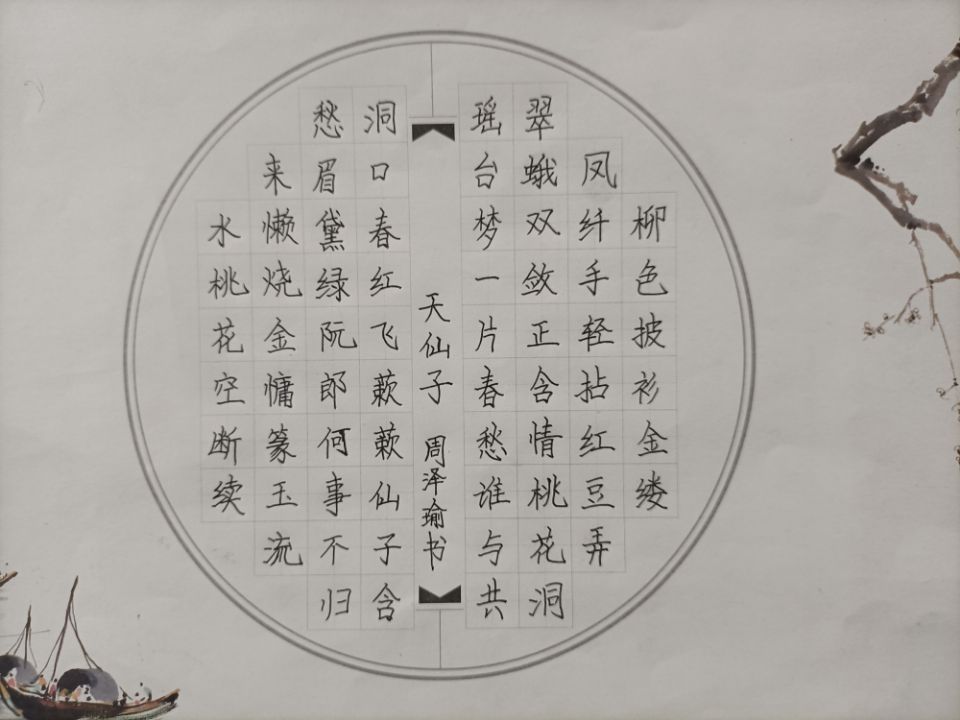 柳色披衫金缕
凤纤手轻拈红豆弄
翠蛾双敛正含情桃花洞
瑶台梦一片春愁谁与共
天仙子 周泽瑜书
洞口春红飞蔌蔌仙子含
愁眉黛绿阮郎何事不归
来懒烧金慵篆玉流
水桃花空断续